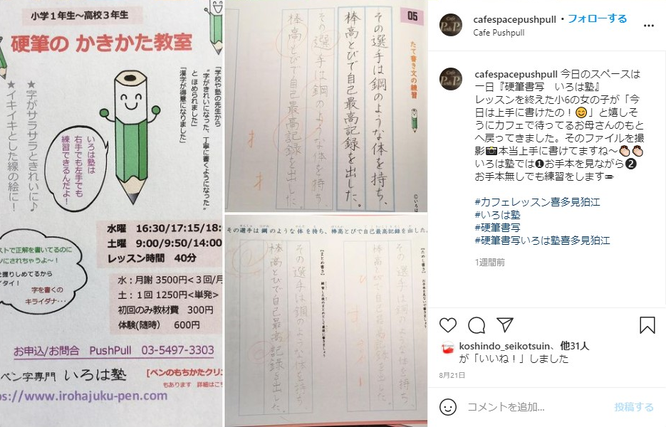 小学1年生～高校3年生
硬筆の かきかた教室
★字がサラサラときれいに♪
★イキイキとした線の絵に!
"学校や塾の先生から
"字がきれいになった、丁寧に書くようになった"
とほめられました"
"漢字が得意になりました"
いろは塾は
右手でも左手でも
練習できるんだよ!
水曜 16:30/17:15/18:
土曜 9:00/9:50/14:00
レッスン時間 40分
ストで正解を書いてるのに
握りしめてるから
イタイ!
字を書くの
キライダナ…
水:月謝 3500円<3回/月
土:1回 1250円<単発>
初回のみ教材費 300円
体験(随時) 600円
お申込/お問合 PushPull 03-5497-3303
ペン字専門 いろは塾
[ペンのもちかたクリ
もあります 詳細はこ
s://www.irohajuku-pen.com
05
たて書き文の練習
その選手は鋼のような体を持ち、
棒高とびで自己最高記録を出した。
その選手は鋼のような体を持ち、
棒高とびで自己最高記録を出した。
その選手は鋼のような体を持ち、棒高とびで自己最高記録を出した。
その選手は鋼のような体を持ち、
棒高とびで自己最高記録を出した。
その選手は鋼のような体を持ち、
棒高とびで自己最高記録を出した。
cafespacepushpull • フォローする
Cafe Pushpull
cafespacepushpull 今日のスペースは
一日『硬筆書写 いろは塾』
レッスンを終えた小6の女の子が「今
日は上手に書けたの!😊」と嬉しそ
うにカフェで待ってるお母さんのもと
へ戻ってきました。そのファイルを撮
影📷本当上手に書けてますね〜👏👏
いろは塾では❶お手本を見ながら❷
お手本無しでも練習をします✏
#カフェレッスン喜多見狛江
#いろは塾
#硬筆書写
#硬筆書写いろは塾喜多見狛江
1週間前
koshindo_seikotsuin、他31人
が「いいね!」しました
8月21日
コメントを追加...
投稿する